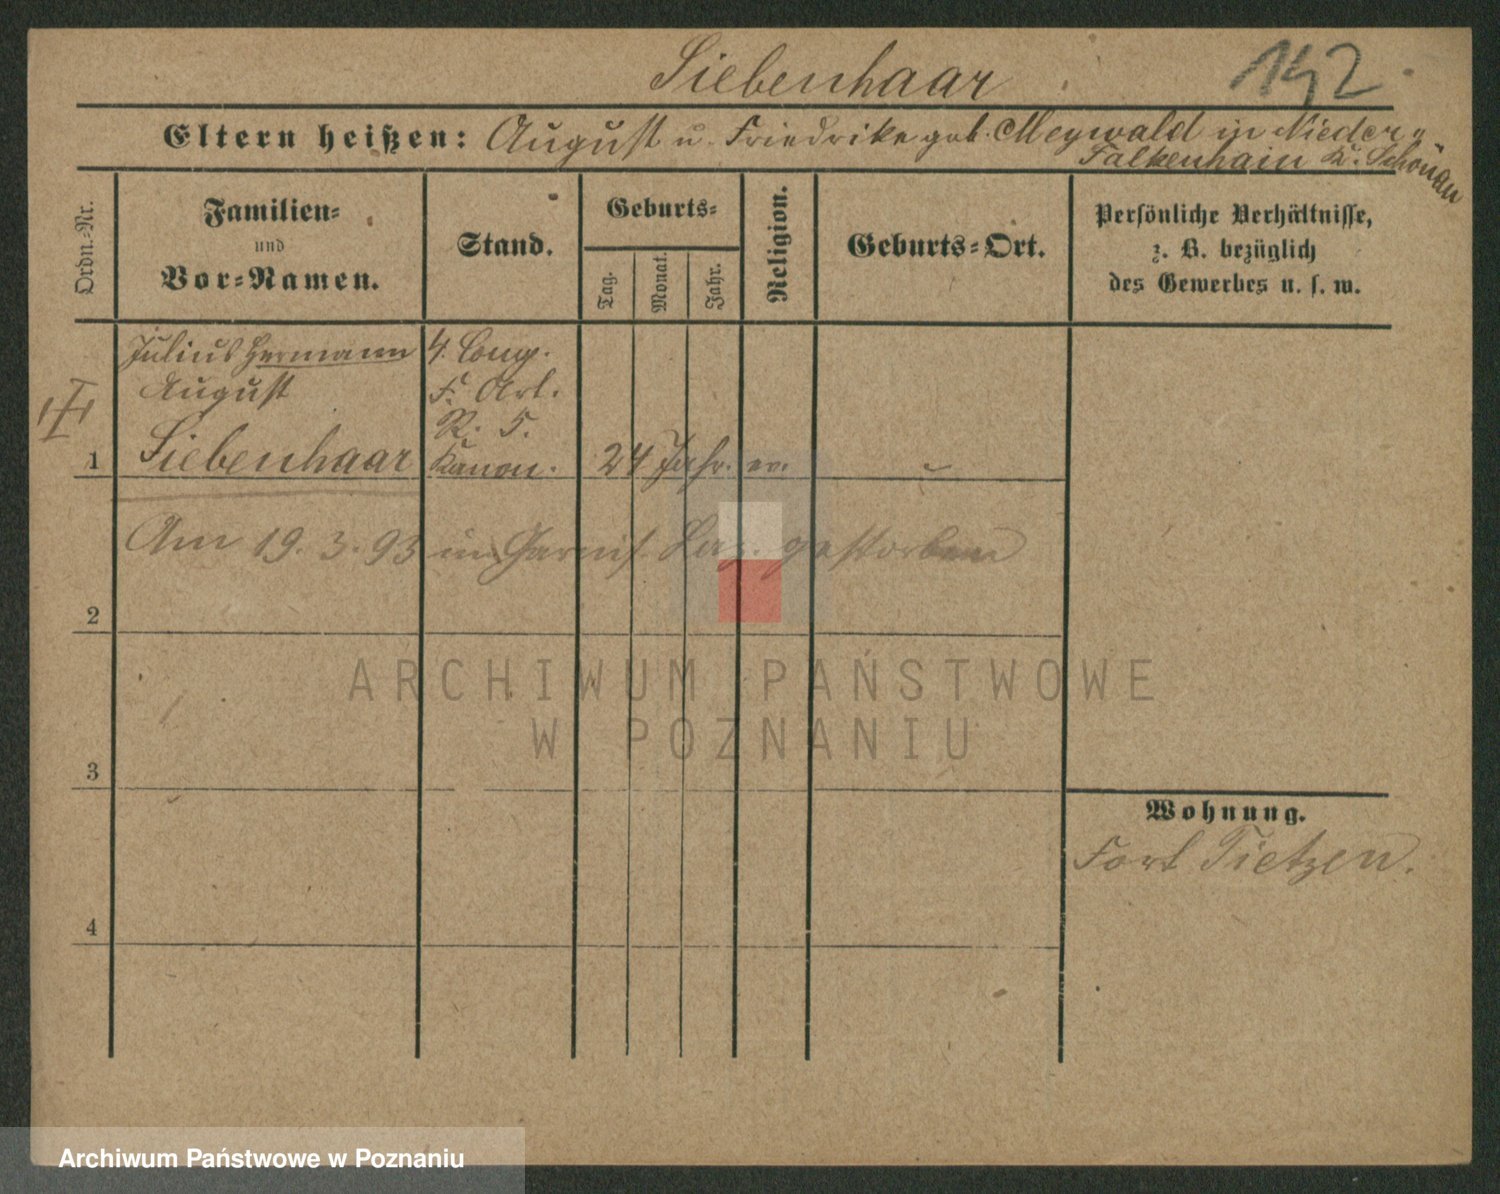 Siebenhaar
142
Eltern heißen: August u. Friedrike geb. Meywald in Nieder-
Falkenhain K. Schönau
Ordn.-Nr.
Familien-
und
Vor-Namen.
Stand.
Geburts-
Tag.
Monat.
Jahr.
Religion.
Geburts-Ort.
Persönliche Verhältnisse,
z. B. bezüglich
des Gewerbes u. s. w.
Julius Hermann
August
Siebenhaar
4. Comp.
F. Art.
R. 5.
Kanon.
1
24 Jahr.
ev.
Am 19. 3. 93 im Garnis. Laz. gestorben
2
3
4
Wohnung.
Fort Tietzen.
ARCHIWUM PAŃSTWOWE
W POZNANIU
Archiwum Państwowe w Poznaniu